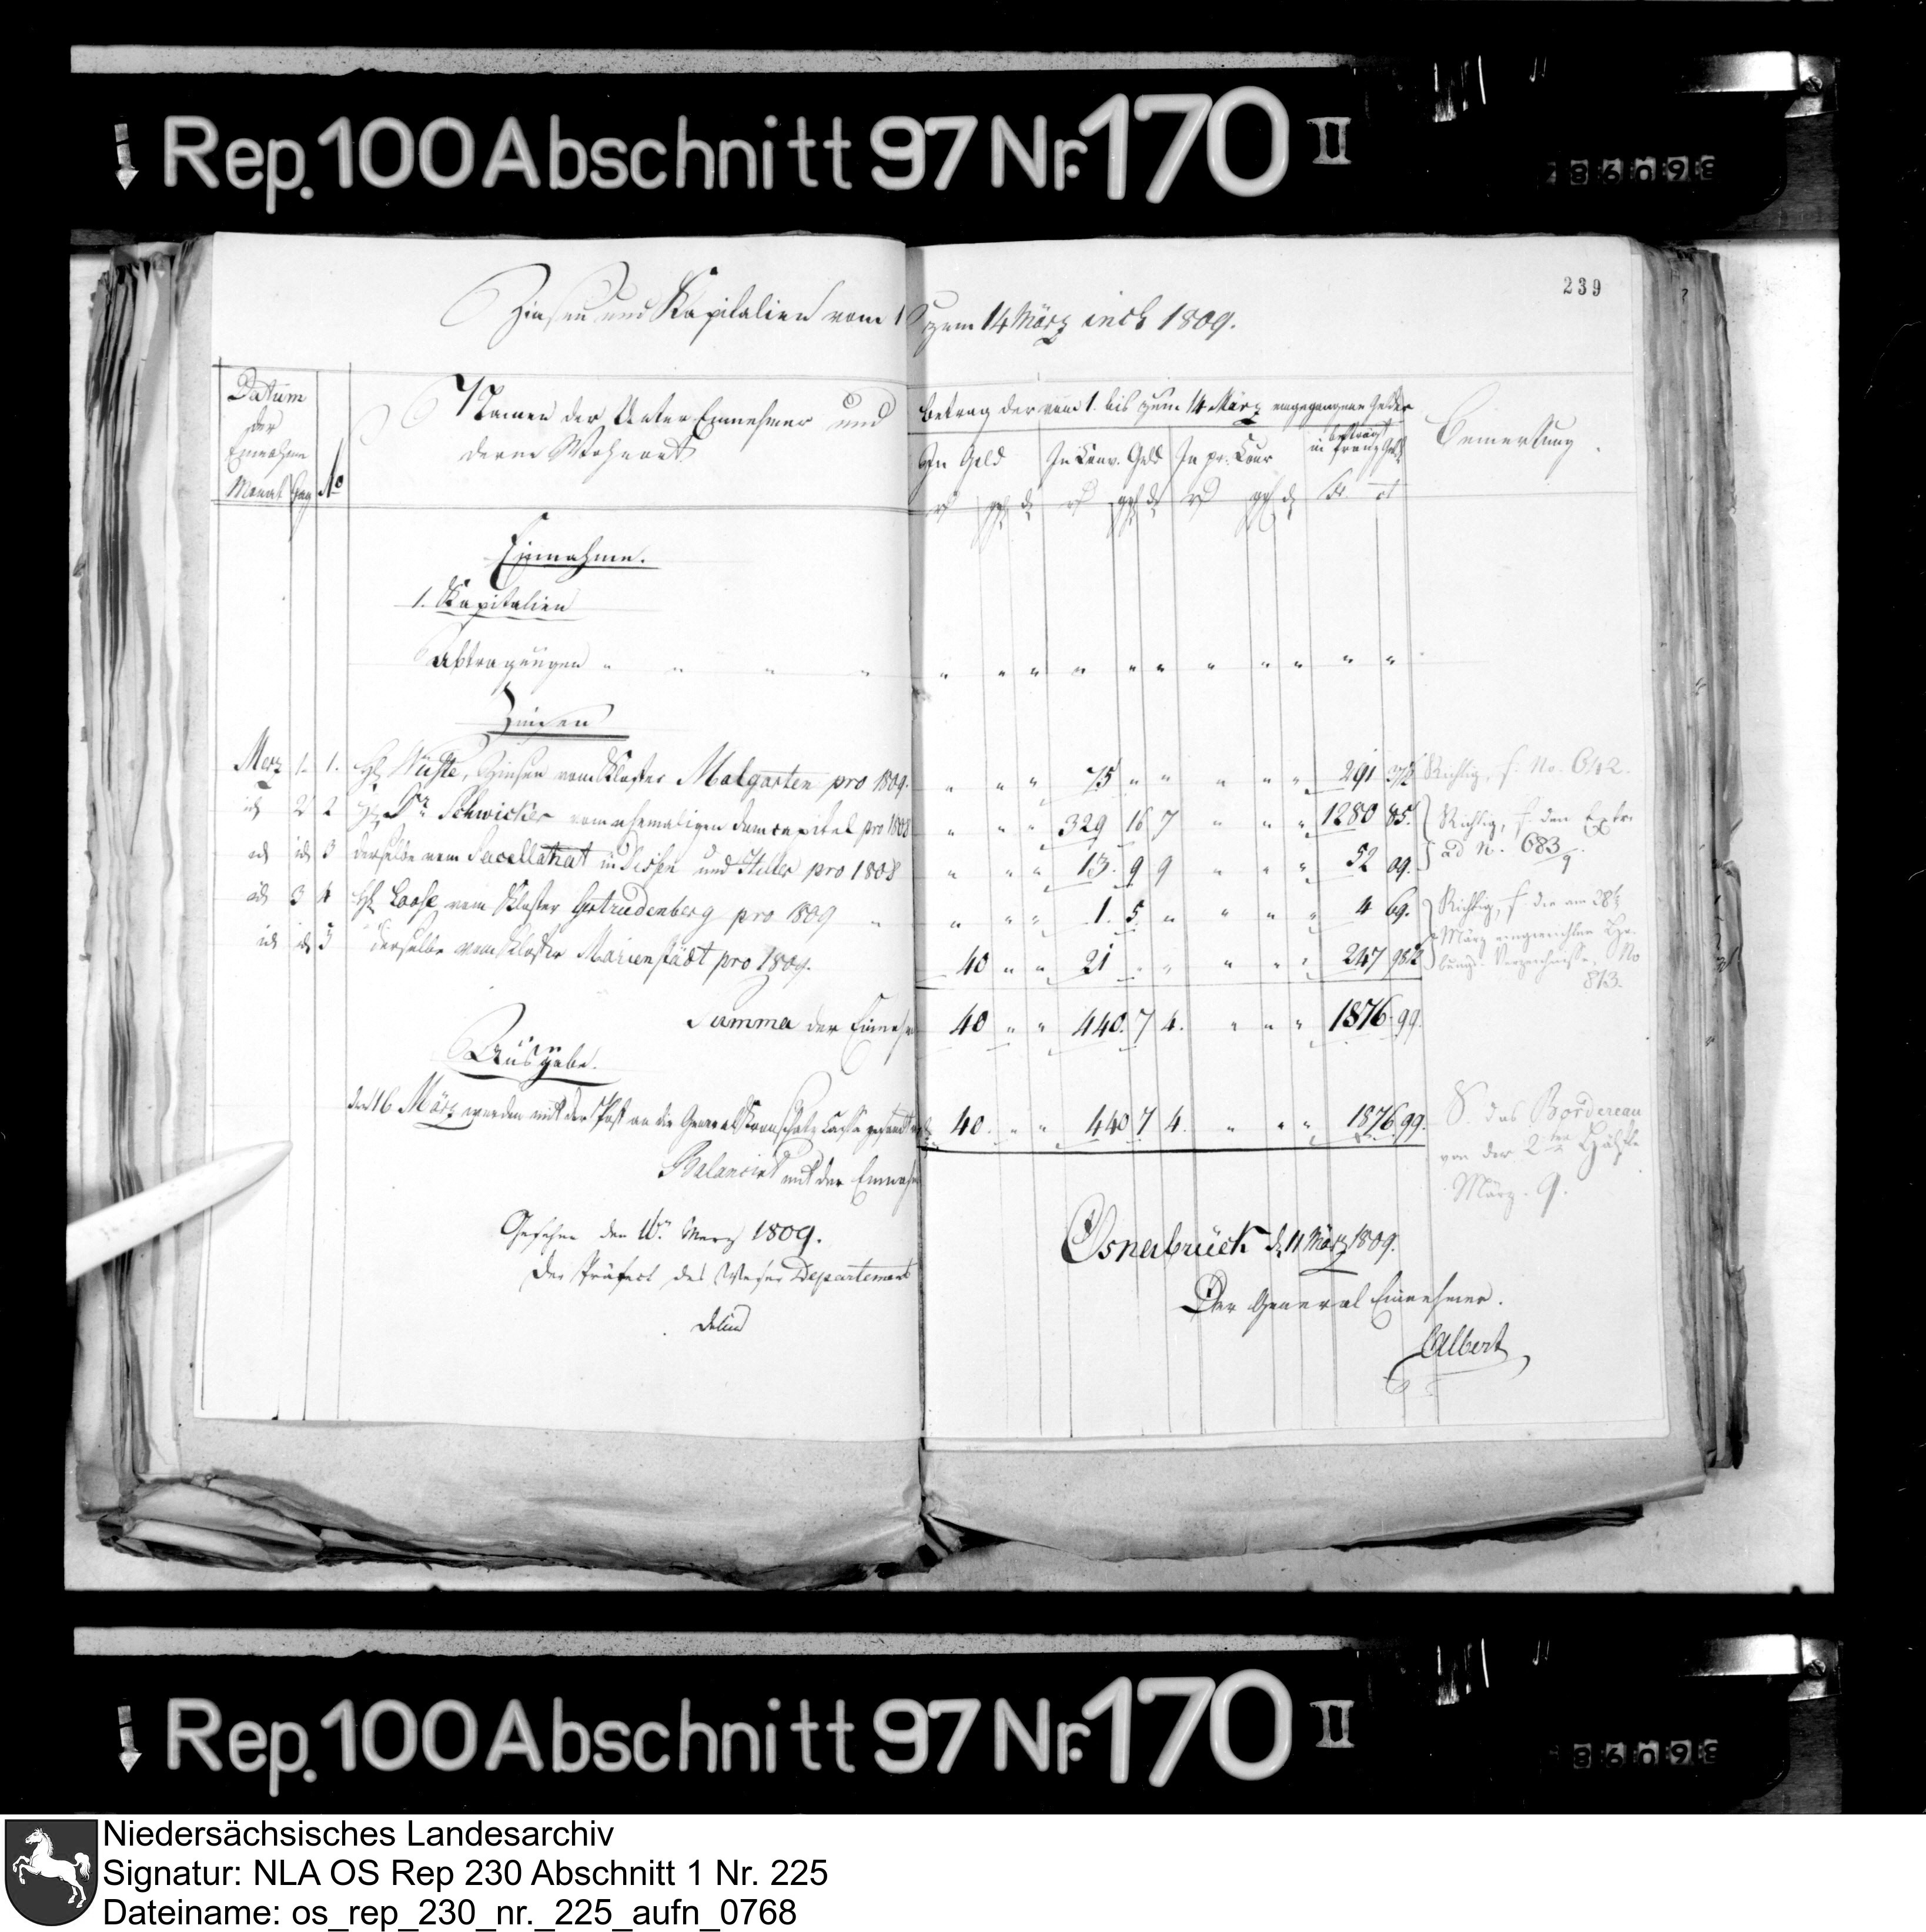 Rep. 100 Abschnitt 97 Nr. 170 II
86098
239
Zinsen und Kapitalien vom 1 zum 14 März incl 1809.
Datum
der
Einnahme
Monat Tag No
Namen der Unter Einnehmer und
deren Wohnort
Betrag der vom 1. bis zum 14 März eingegangene Gelder
In Gold In Conv. Geld In pr. Cour beträgt in franz. Geld
Bemerkung.
Einnahme.
1. Kapitalien
Abtragungen " " " " " " " " " " " " " " "
Zinsen
Merz 1. 1. H. Nüste, Zinsen vom Kloster Malgarten pro 1809. " " " 75 " " " " " 291 37½ Richtig, s. No. 642.
id 2 2 H. Dr Schwicker vom ehemaligen Domcapitel pro 1808 " " " 329 16 7 " " " 1280 85. Richtig, s. den Extr.
id id 3 derselbe vom Sacellanat in Dissen und Hilter pro 1808 " " " 13. 9 9 " " " 52 09. ad N. 683/9.
id 3 4 H. Loose vom Kloster Gertrudenberg pro 1809 " " " " 1. 5 " " " " 4 69. Richtig, s. die am 28t
März eingereichten
id id 5 derselbe vom Kloster Marienstädt pro 1809. 40 " " 21 " " " " " 247 98½ Verzeichnisse, No
813.
Summa der Einnahme 40 " " 440. 7 4. " " " 1876 99.
Ausgabe.
den 16 März wurden mit der Post an die General Kronschatz Casse gesandt 40. " " 440 7 4. " " " 1876 99. S. das Bordereau
von der 2ten Hälfte
März. 9.
Balancirt mit der Einnahme
Gesehen den 16n Merz 1809.
Der Präfect des Weser Departements
Delius
Osnabrück d. 11 März 1809.
Der General Einnehmer.
Albert
Rep. 100 Abschnitt 97 Nr. 170 II
86098
Niedersächsisches Landesarchiv
Signatur: NLA OS Rep 230 Abschnitt 1 Nr. 225
Dateiname: os_rep_230_nr._225_aufn_0768